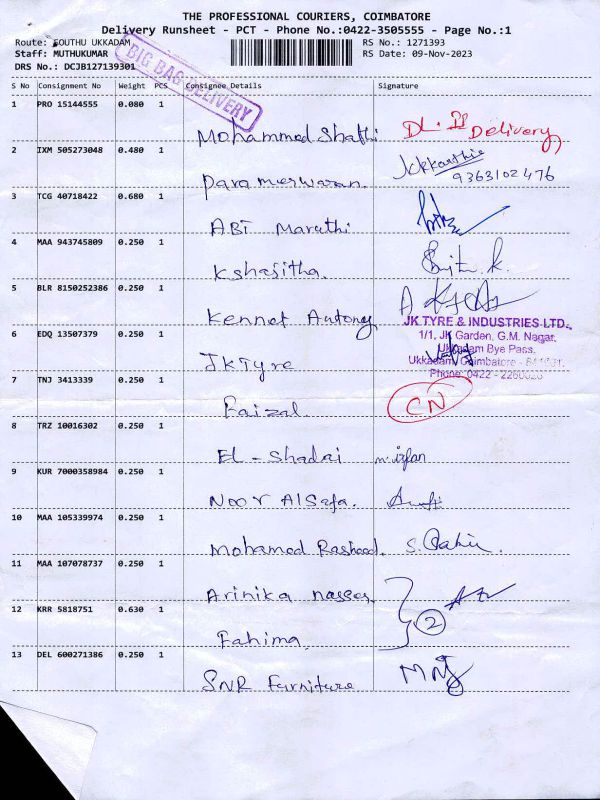 THE PROFESSIONAL COURIERS, COIMBATORE
Delivery Runsheet - PCT - Phone No.:0422-3505555 - Page No.:1
Route: SOUTHU UKKADAM
RS No.: 1271393
Staff: MUTHUKUMAR
RS Date: 09-Nov-2023
DRS No.: DCJB127139301
BIG BAG DELIVERY
S No Consignment No Weight PCS Consignee Details Signature
1 PRO 15144555 0.080 1
Mohammed Shafhi DL. Delivery
2 IXM 505273048 0.480 1
Parameswaran. Jckkarthie
9363102476
3 TCG 40718422 0.680 1
ABI Maruthi
4 MAA 943745809 0.250 1
Kshasitha.
5 BLR 8150252386 0.250 1
Kennet Antony
JK TYRE & INDUSTRIES LTD.,
1/1, JK Garden, G.M. Nagar,
6 EDQ 13507379 0.250 1
Ukkadam Bye Pass,
JK Tyre Ukkadam, Coimbatore -
Phone: 0422 -
7 TNJ 3413339 0.250 1
Faizal CN
8 TRZ 10016302 0.250 1
EL-Shadai m.irfan
9 KUR 7000358984 0.250 1
Noor AlSafa.
10 MAA 105339974 0.250 1
Mohamed Rasheed.
11 MAA 107078737 0.250 1
Arinika nasser
12 KRR 5818751 0.630 1
2
Fahima
13 DEL 600271386 0.250 1
SNR Furniture